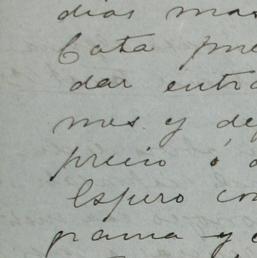 dias mas
Cata pue
dar entra
mes y de
precio ó a
Espero con
grama y